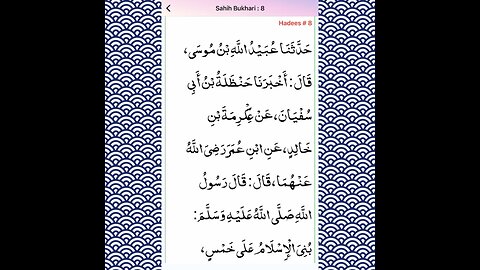 Sahih Bukhari : 8
Hadees # 8
حَدَّثَنَا عُبَيْدُ اللَّهِ بْنُ مُوسَى،
قَالَ: أَخْبَرَنَا حَنْظَلَةُ بْنُ أَبِي
سُفْيَانَ، عَنْ عِكْرِمَةَ بْنِ
خَالِدٍ، عَنِ ابْنِ عُمَرَ رَضِيَ اللَّهُ
عَنْهُمَا، قَالَ: قَالَ رَسُولُ
اللَّهِ صَلَّى اللَّهُ عَلَيْهِ وَسَلَّمَ:
بُنِيَ الْإِسْلَامُ عَلَى خَمْسٍ،